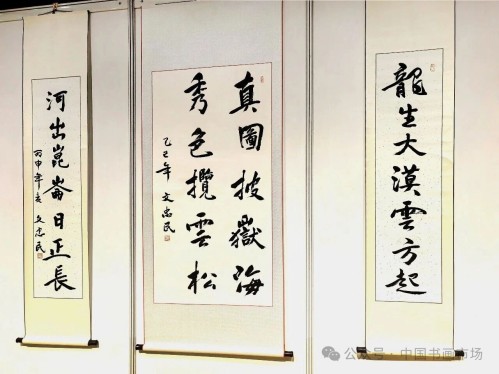 龍生大漠雲方起
真圖披嶽海
秀色攬雲松
乙巳年 文忠民
河出崑崙日正長
丙申年 文忠民
公众号 · 中国书画市场